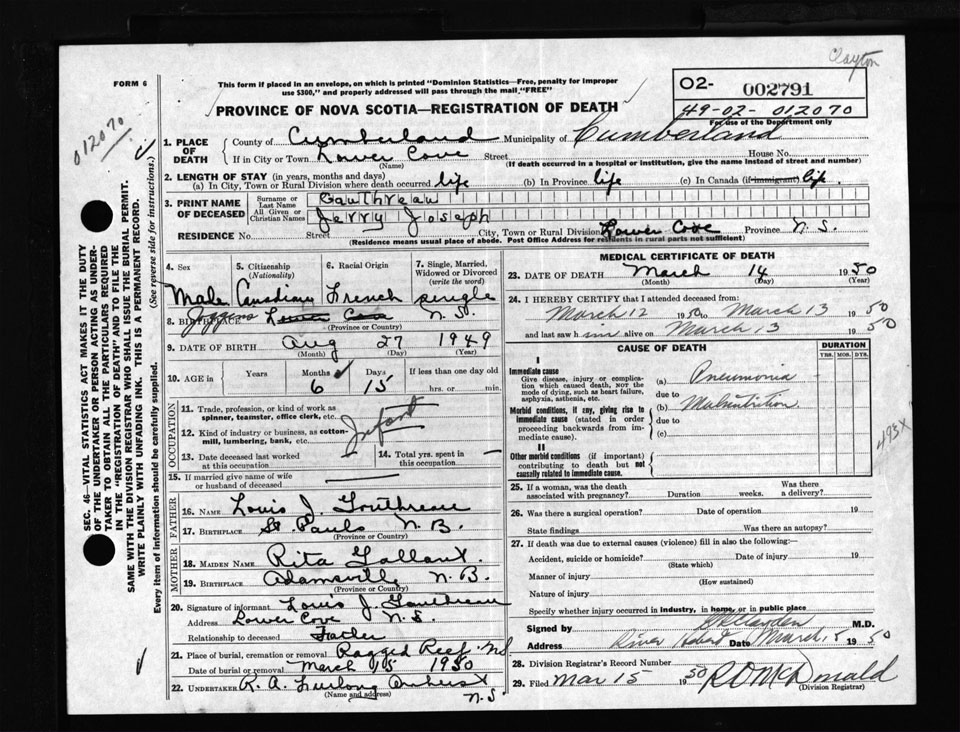 Clayton
FORM 6
This form if placed in an envelope, on which is printed "Dominion Statistics—Free, penalty for improper
use $300," and properly addressed will pass through the mail "FREE"
PROVINCE OF NOVA SCOTIA—REGISTRATION OF DEATH
02- 002791
49-02-012070
For use of the Department only
012070
SEC. 46—VITAL STATISTICS ACT MAKES IT THE DUTY
OF THE UNDERTAKER OR PERSON ACTING AS UNDER-
TAKER TO OBTAIN ALL THE PARTICULARS REQUIRED
IN THE "REGISTRATION OF DEATH" AND TO FILE THE
SAME WITH THE DIVISION REGISTRAR WHO SHALL ISSUE THE BURIAL PERMIT.
WRITE PLAINLY WITH UNFADING INK. THIS IS A PERMANENT RECORD.
Every item of information should be carefully supplied. (See reverse side for instructions.)
1. PLACE OF DEATH County of Cumberland Municipality of Cumberland
If in City or Town Lower Cove Street House No.
(Name) (If death occurred in a hospital or institution, give the name instead of street and number)
2. LENGTH OF STAY (in years, months and days)
(a) In City, Town or Rural Division where death occurred life (b) In Province life (c) In Canada (if immigrant) life
3. PRINT NAME OF DECEASED Surname or Last Name Gauthreau
All Given or Christian Names Jerry Joseph
RESIDENCE No. Street City, Town or Rural Division Lower Cove Province N.S.
(Residence means usual place of abode. Post Office Address for residents in rural parts not sufficient)
4. Sex 5. Citizenship (Nationality) 6. Racial Origin 7. Single, Married, Widowed or Divorced (write the word)
Male Canadian French single
8. BIRTHPLACE Joggins Lower Cove N.S.
(Province or Country)
9. DATE OF BIRTH Aug 27 1949
(Month) (Day) (Year)
10. AGE in Years Months 6 Days 15 If less than one day old
hrs. or min.
OCCUPATION
11. Trade, profession, or kind of work as
spinner, teamster, office clerk, etc.
Infant
12. Kind of industry or business, as cotton-
mill, lumbering, bank, etc.
13. Date deceased last worked
at this occupation
14. Total yrs. spent in
this occupation
15. If married give name of wife
or husband of deceased
FATHER
16. NAME Louis J. Gouthreau
17. BIRTHPLACE St. Pauls N.B.
(Province or Country)
MOTHER
18. MAIDEN NAME Rita Gallant.
19. BIRTHPLACE Adamsville N.B.
(Province or Country)
20. Signature of informant Louis J. Gouthreau
Address Lower Cove N.S.
Relationship to deceased Father
21. Place of burial, cremation or removal Ragged Reef N.S
Date of burial or removal March 15 1950
22. UNDERTAKER R. A. Furlong Amherst
(Name and address) N.S.
MEDICAL CERTIFICATE OF DEATH
23. DATE OF DEATH March 14 1950
(Month) (Day) (Year)
24. I HEREBY CERTIFY that I attended deceased from:
March 12 1950 to March 13 1950
and last saw h im alive on March 13 1950
CAUSE OF DEATH DURATION
YRS. MOS. DYS.
I
Immediate cause
Give disease, injury or complica-
tion which caused death, NOT the
mode of dying, such as heart failure,
asphyxia, asthenia, etc.
(a) Pneumonia
due to
Morbid conditions, if any, giving rise to
immediate cause (stated in order
proceeding backwards from im-
mediate cause).
(b) Malnutrition.
due to
(c)
493X
II
Other morbid conditions (if important)
contributing to death but not
causally related to immediate cause.
25. If a woman, was the death
associated with pregnancy? Duration weeks. Was there
a delivery?
26. Was there a surgical operation? Date of operation 19
State findings Was there an autopsy?
27. If death was due to external causes (violence) fill in also the following:—
Accident, suicide or homicide? Date of injury 19
(State which)
Manner of injury
(How sustained)
Nature of injury
Specify whether injury occurred in industry, in home, or in public place
Signed by M.D.
Address River Hebert Date March 15 1950
28. Division Registrar's Record Number
29. Filed Mar 15 1950 R D McDonald
(Division Registrar)